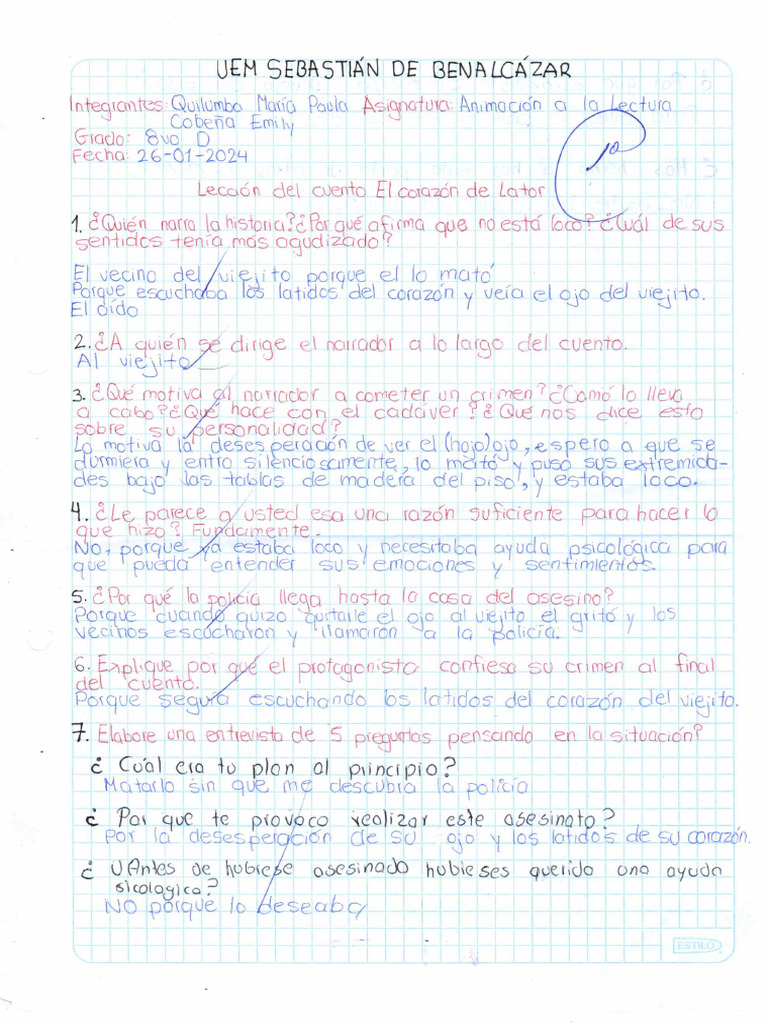 UEM SEBASTIÁN DE BENALCÁZAR
Integrantes: Quilumba María Paula Asignatura: Animación a la Lectura
Cobeña Emily
Grado: 8vo D
Fecha: 26-01-2024
10
Lección del cuento El corazón de Lator
1. ¿Quién narra la historia? ¿Por qué afirma que no está loco? ¿Cuál de sus
sentidos tenía más agudizado?
El vecino del viejito porque el lo mató
Porque escuchaba los latidos del corazón y veía el ojo del viejito.
El oído
2. ¿A quién se dirige el narrador a lo largo del cuento.
Al viejito
3. ¿Qué motiva al narrador a cometer un crimen? ¿Comó lo lleva
a cabo? ¿Qué hace con el cadáver? ¿Qué nos dice esto
sobre su personalidad?
Lo motiva la desesperación de ver el (hojo) ojo, espero a que se
durmiera y entro silenciosamente, lo mató y puso sus extremida-
des bajo las tablas de madera del piso, y estaba loco.
4. ¿Le parece a usted esa una razón suficiente para hacer lo
que hizo? Fundamente.
No, porque ya estaba loco y necesitaba ayuda psicológica para
que pueda entender sus emociones y sentimientos.
5. ¿Por qué la policía llega hasta la casa del asesino?
Porque cuando quizo quitarle el ojo al viejito el gritó y los
vecinos escucharon y llamaron a la policía.
6. Explique por qué el protagonista confiesa su crimen al final
del cuento.
Porque seguía escuchando los latidos del corazón del viejito.
7. Elabore una entrevista de 5 preguntas pensando en la situación?
¿ Cuál era tu plan al principio?
Matarlo sin que me descubra la policía
¿ Por que te provoco realizar este asesinato?
Por la desesperación de su ojo y los latidos de su corazón.
¿ UAntes de hubiese asesinado hubieses querido una ayuda
sicologica?
NO porque lo deseaba
ESTILO